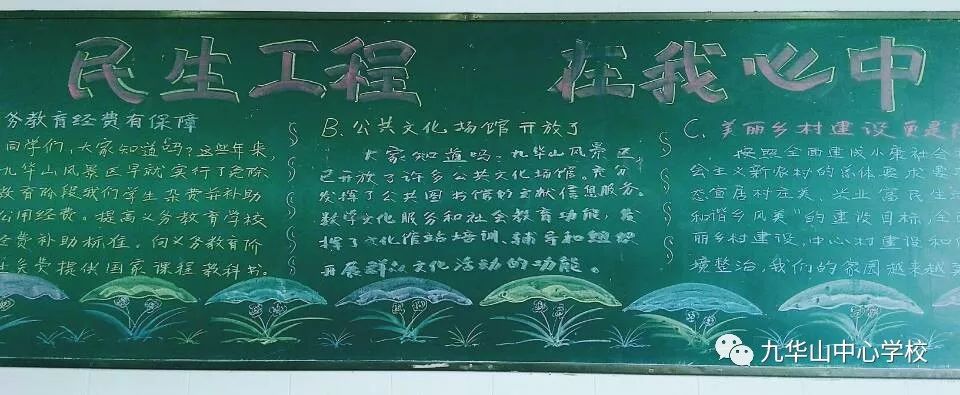 民生工程 在我心中
务教育经费有保障
同学们,大家知道吗?这些年来,
九华山风景区早就实行了免除
教育阶段我们学生杂费并补助
公用经费。提高义务教育学校
经费补助标准。向义务教育阶
生免费提供国家课程教科书。
B、公共文化场馆开放了
大家知道吗?九华山风景区
已开放了许多公共文化场馆。充分
发挥了公共图书馆的文献信息服务。
数字文化服务和社会教育功能,发
挥了文化馆站培训、辅导和组织
开展群众文化活动的功能。
C、美丽乡村建设更是
按照全面建成小康社会
会主义新农村的总体要求
态宜居村庄美、兴业富民生
和谐乡风美"的建设目标,全
丽乡村建设,中心村建设和
境整治,我们的家园越来越美
九华山中心学校